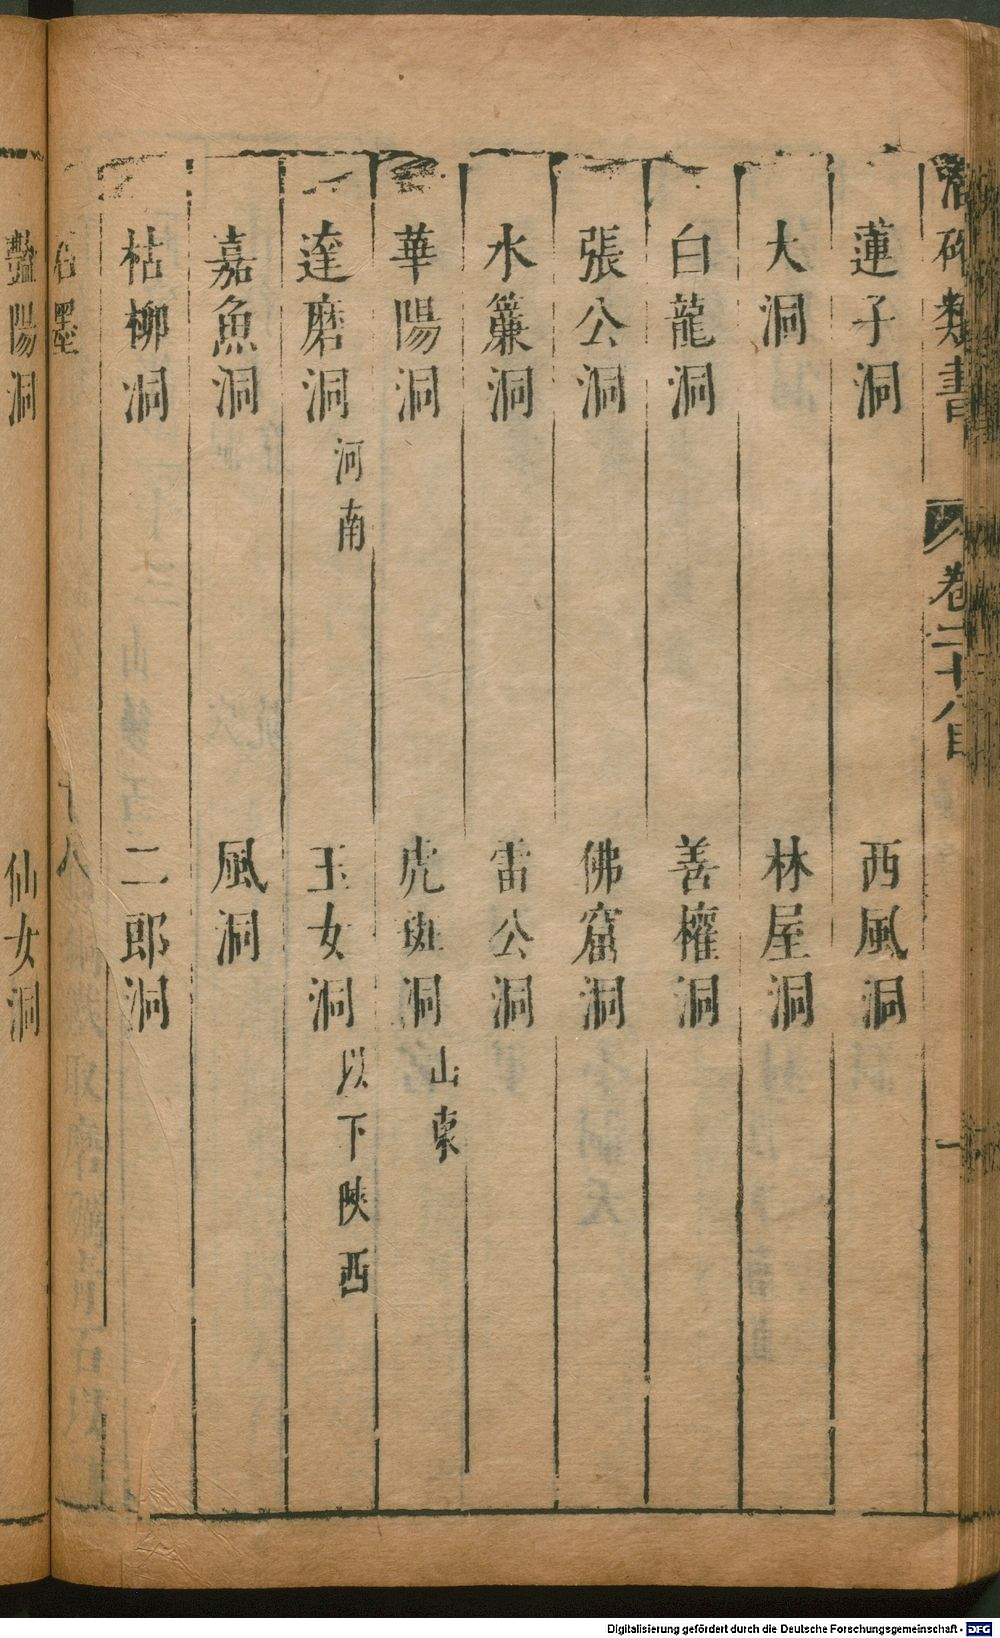 潛確類書
卷二十八目
一
蓮子洞 西風洞
大洞 林屋洞
白龍洞 善權洞
張公洞 佛窟洞
水簾洞 雷公洞
華陽洞 虎斑洞 山東
達磨洞 河南 玉女洞 以下陝西
嘉魚洞 風洞
枯柳洞 二郎洞
艷陽洞 仙女洞
Digitalisierung gefördert durch die Deutsche Forschungsgemeinschaft - DFG